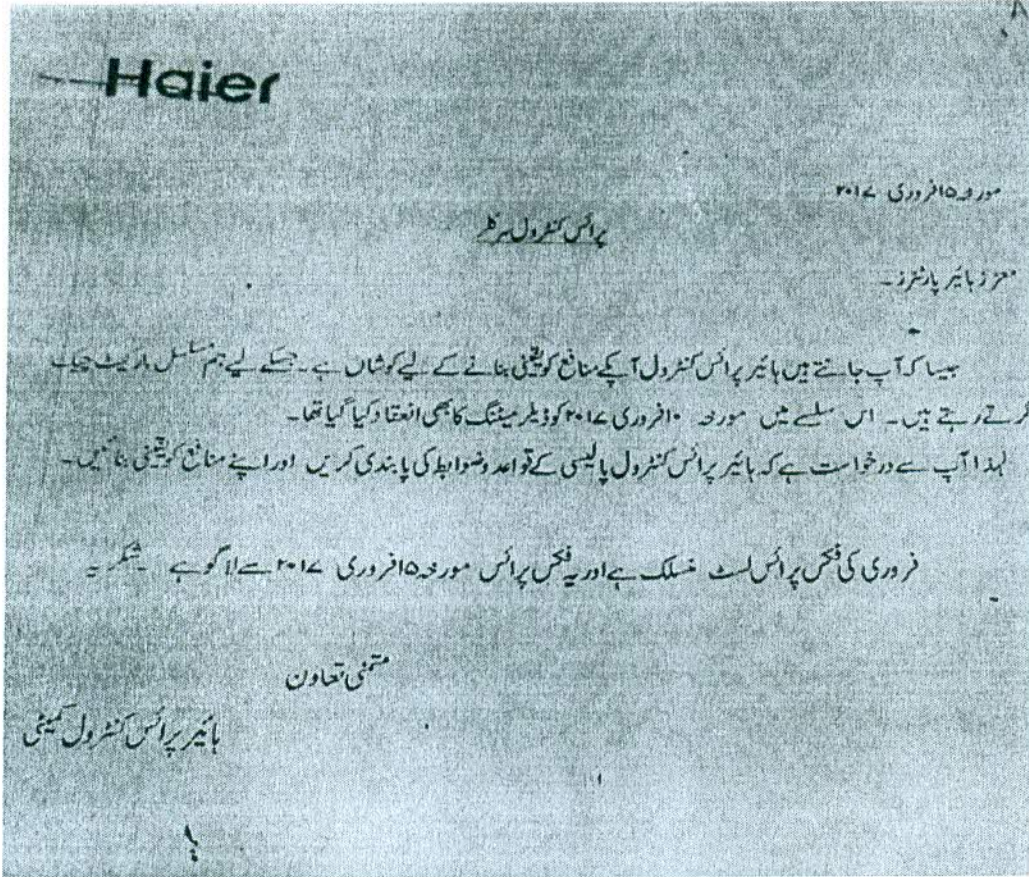 Haier
مورخہ ۱۵فروری ۲۰۱۷
پرائس کنٹرول سرکلر
معزز ہائیر پارٹنرز۔
جیسا کہ آپ جانتے ہیں ہائیر پرائس کنٹرول آپکے منافع کو یقینی بنانے کے لیے کوشاں ہے۔ جسکے لیے ہم مسلسل مارکیٹ چیک
کرتے رہتے ہیں۔ اس سلسلے میں مورخہ ۱۰فروری ۲۰۱۷ کو ڈیلر میٹنگ کا بھی انعقاد کیا گیا تھا۔
لہذا آپ سے درخواست ہے کہ ہائیر پرائس کنٹرول پالیسی کے قواعد و ضوابط کی پابندی کریں اور اپنے منافع کو یقینی بنائیں۔
فروری کی فکس پرائس لسٹ منسلک ہے اور یہ فکس پرائس مورخہ ۱۵فروری ۲۰۱۷ سے لاگو ہے ۔شکریہ
متمنی تعاون
ہائیر پرائس کنٹرول کمیٹی